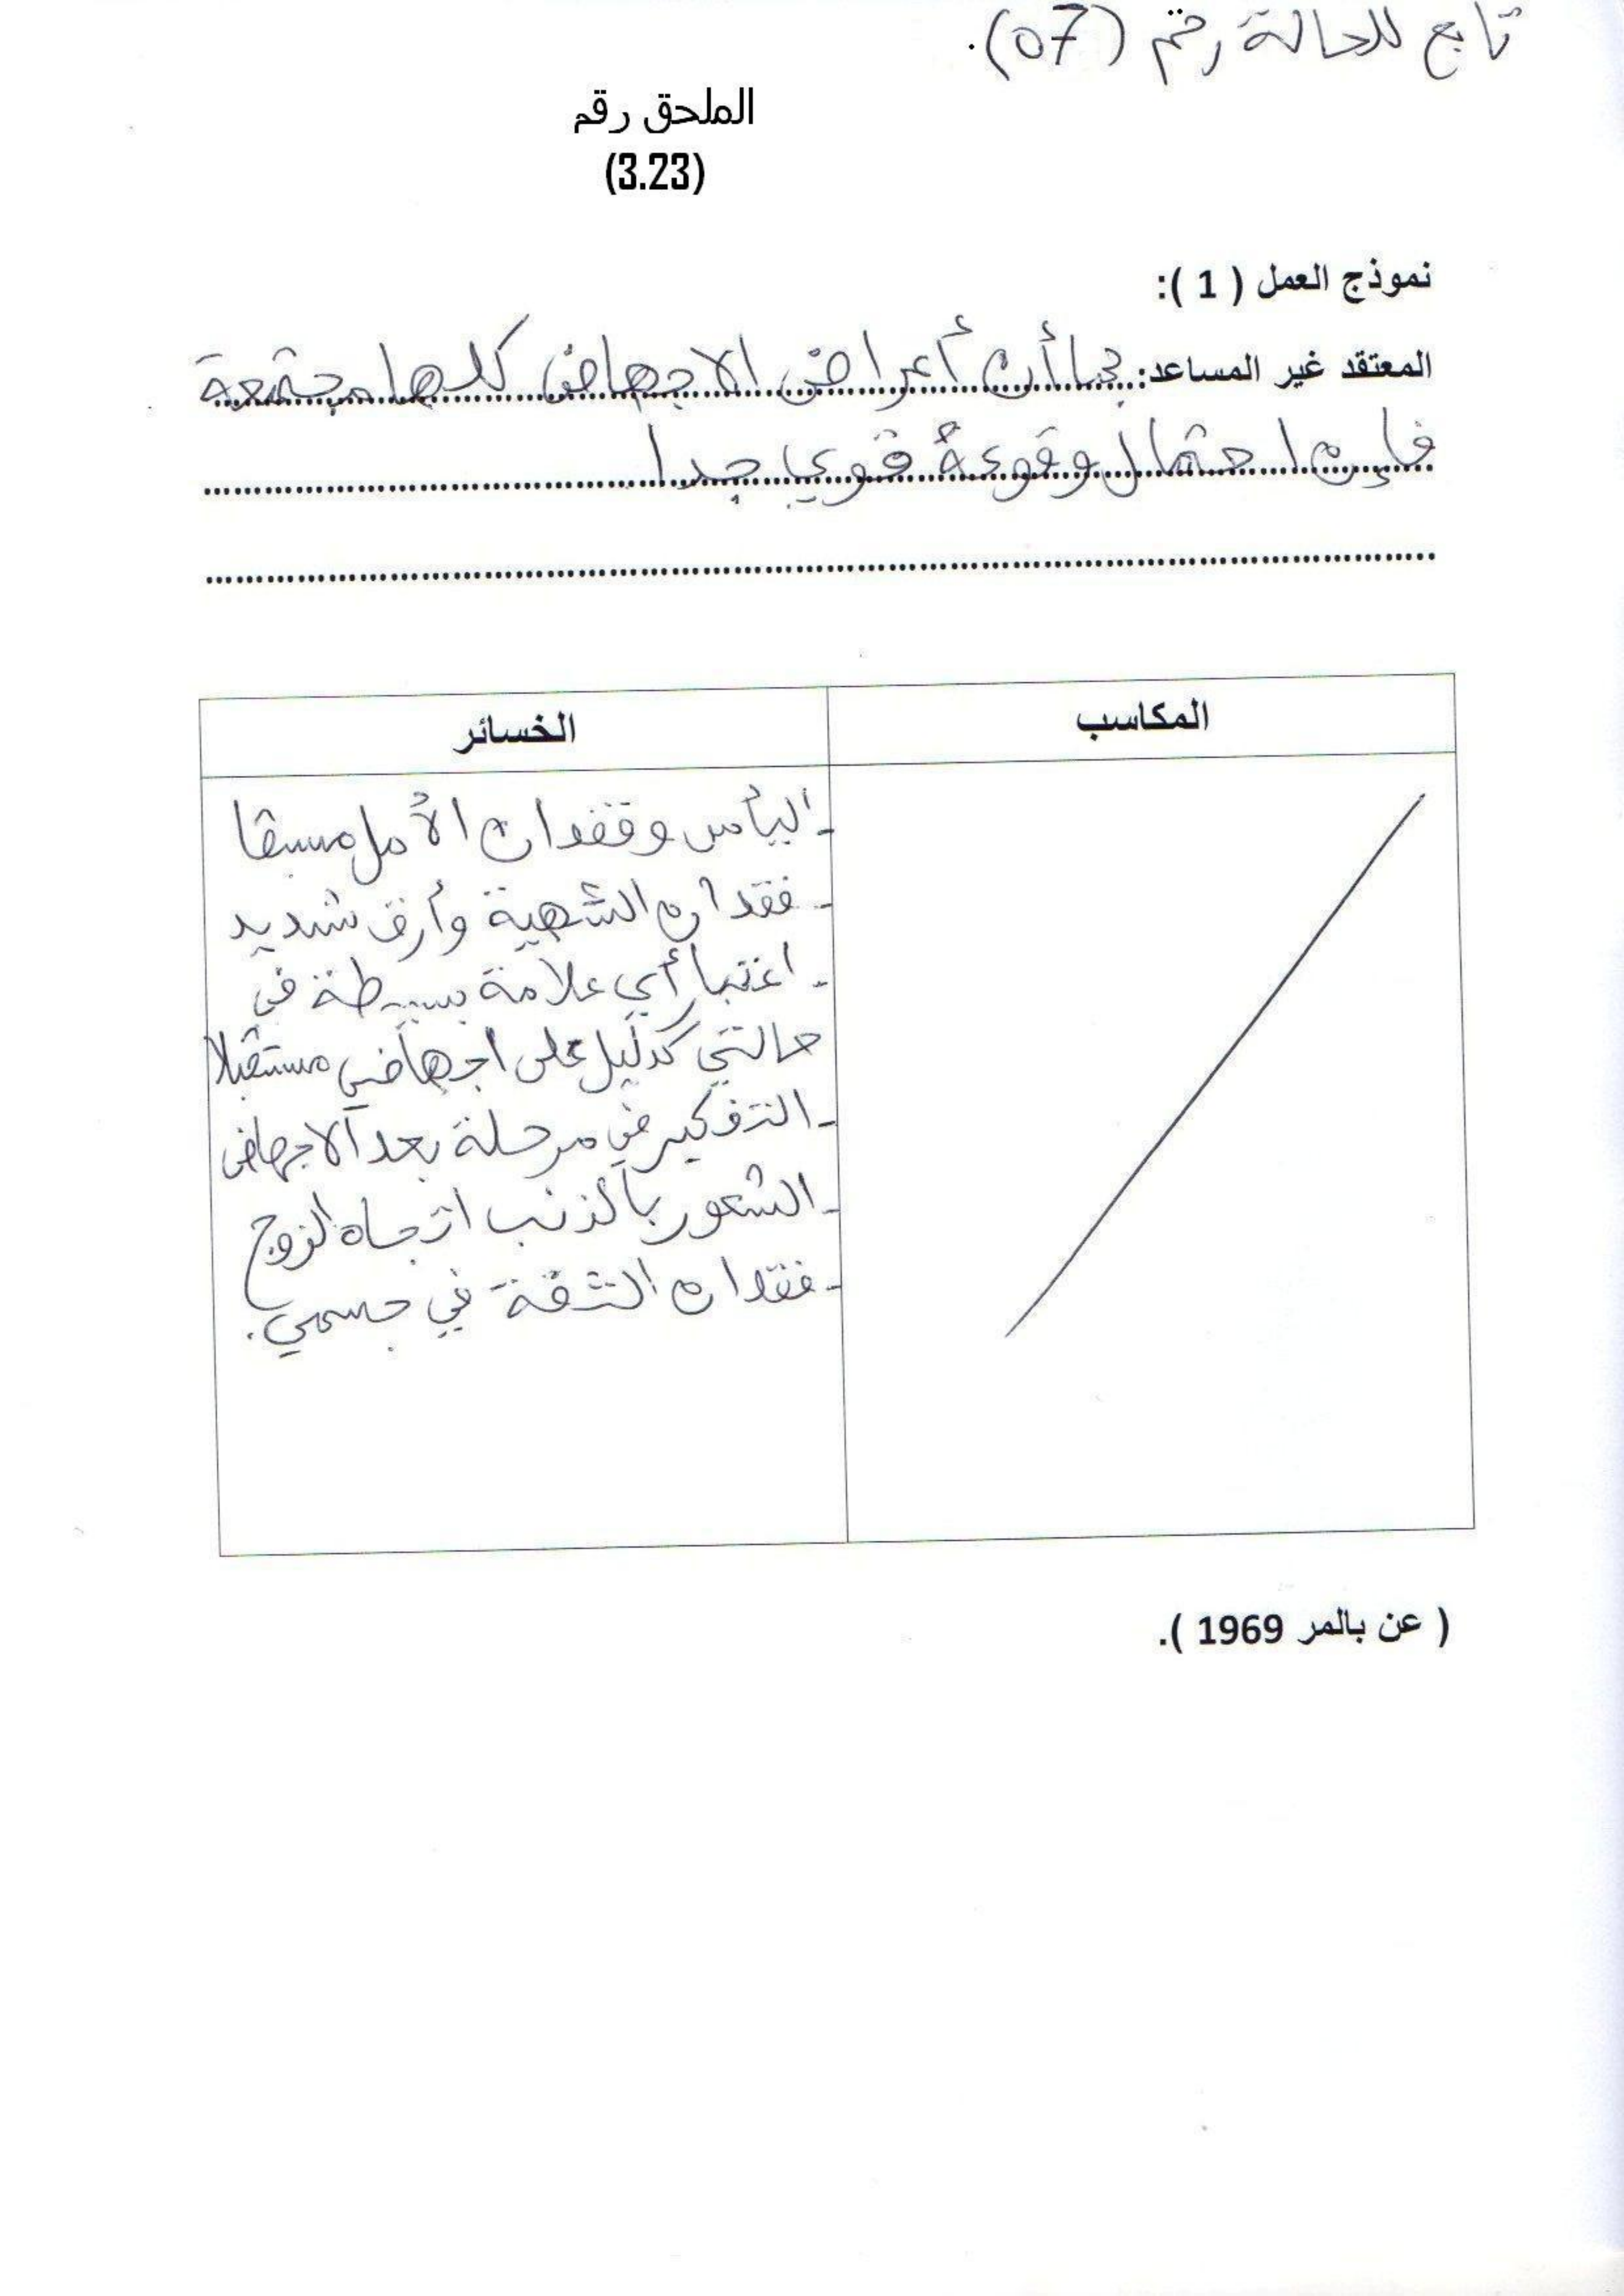 تابع للحالة رقم (07).
الملحق رقم
(3.23)
نموذج العمل ( 1 ):
المعتقد غير المساعد: بما أن أعراض الاجهاض كلها مجتمعة
فإن احتمال وقوعه قوي جدا
المكاسب
الخسائر
- اليأس وفقدان الأمل مسبقا
- فقدان الشهية وأرق شديد
- اعتبار أي علامة بسيطة في
حالتي كدليل على اجهاضي مستقبلا
- التفكير في مرحلة بعد الاجهاض
- الشعور بالذنب اتجاه الزوج
- فقدان الثقة في جسمي.
( عن بالمر 1969 ).